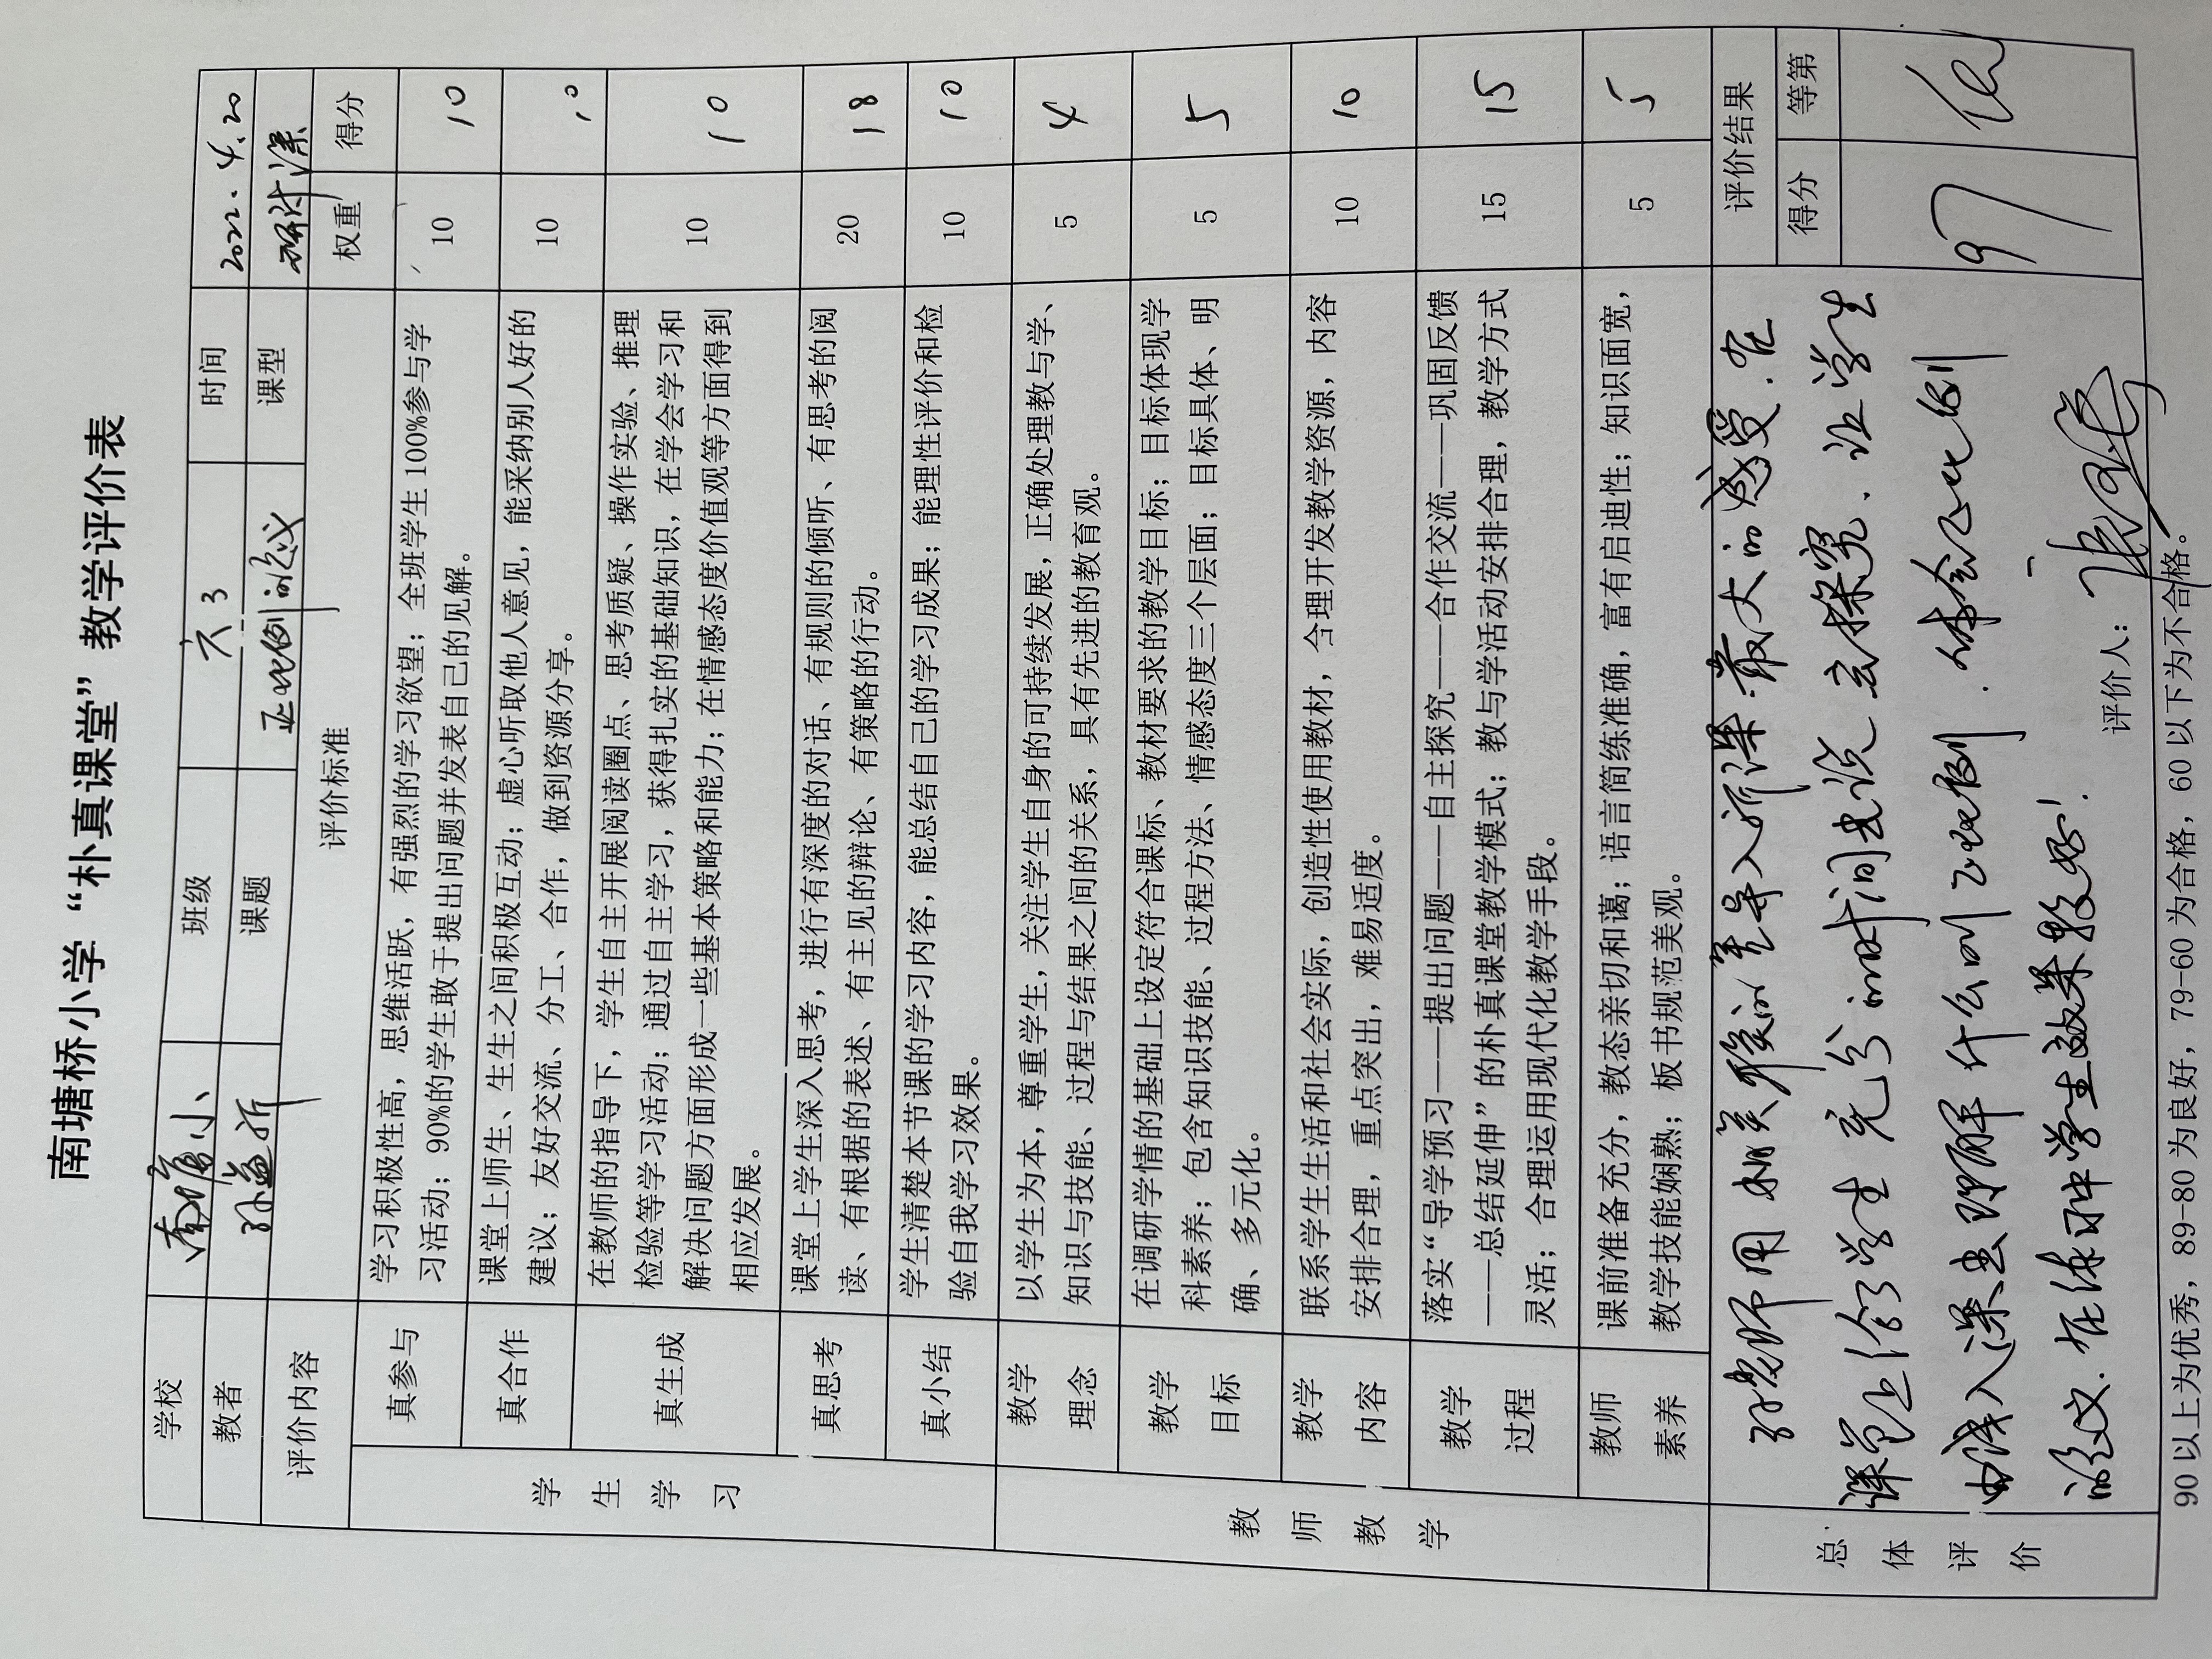 南塘桥小学“朴真课堂”教学评价表
学校 南塘小 班级 六.3 时间 2022.4.20
教者 孙益新 课题 正比例的意义 课型 研讨课
评价内容 评价标准 权重 得分
学生学习
真参与 学习积极性高，思维活跃，有强烈的学习欲望；全班学生100%参与学 10 10
习活动；90%的学生敢于提出问题并发表自己的见解。
真合作 课堂上师生、生生之间积极互动；虚心听取他人意见，能采纳别人好的 10 10
建议；友好交流、分工、合作，做到资源分享。
真生成 在教师的指导下，学生自主开展阅读圈点、思考质疑、操作实验、推理 10 10
检验等学习活动；通过自主学习，获得扎实的基础知识，在学会学习和
解决问题方面形成一些基本策略和能力；在情感态度价值观等方面得到
相应发展。
真思考 课堂上学生深入思考，进行有深度的对话、有规则的倾听、有思考的阅 20 18
读、有根据的表述、有主见的辩论、有策略的行动。
真小结 学生清楚本节课的学习内容，能总结自己的学习成果；能理性评价和检 10 10
验自我学习效果。
教师教学
教学理念 以学生为本，尊重学生，关注学生自身的可持续发展，正确处理教与学、 5 4
知识与技能、过程与结果之间的关系，具有先进的教育观。
教学目标 在调研学情的基础上设定符合课标、教材要求的教学目标；目标体现学 5 5
科素养；包含知识技能、过程方法、情感态度三个层面；目标具体、明
确、多元化。
教学内容 联系学生生活和社会实际，创造性使用教材，含理开发教学资源，内容 10 10
安排合理，重点突出，难易适度。
教学过程 落实“导学预习——提出问题——自主探究——合作交流——巩固反馈 15 15
——总结延伸”的朴真课堂教学模式；教与学活动安排合理，教学方式
灵活；合理运用现代化教学手段。
教师素养 课前准备充分，教态亲切和蔼；语言简练准确，富有启迪性；知识面宽， 5 5
教学技能娴熟；板书规范美观。
总体评价 评价结果
得分 等第
97 优
孙老师用相关联的量导入新课.最大的感受.在
课堂上给学生充分的时间去说去探究.让学生
由浅入深去理解什么叫正比例.体会正比例
的意义.在体味中学生效果较好!
评价人：
90以上为优秀，89-80为良好，79-60为合格，60以下为不合格。